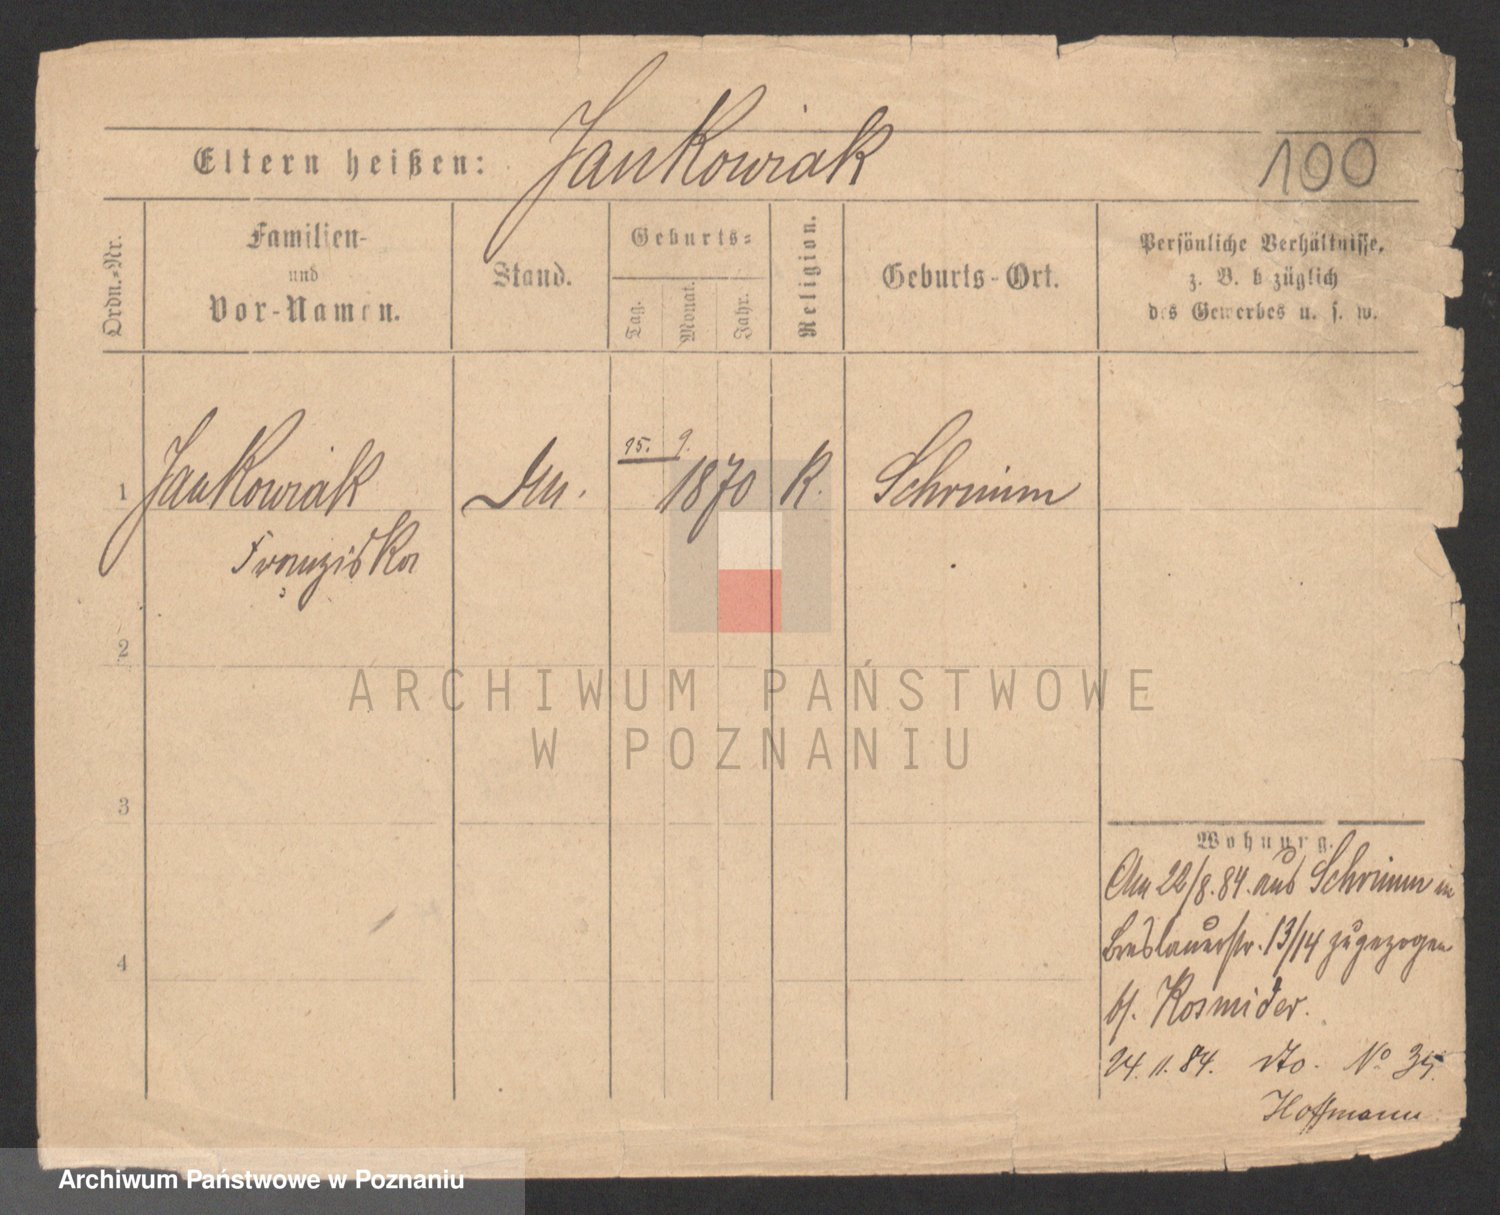 Jankowiak
Eltern heißen:
100
Ordn.-Nr.
Familien-
und
Vor-Namen.
Stand.
Geburts-
Tag.
Monat.
Jahr.
Religion.
Geburts-Ort.
Persönliche Verhältnisse,
z. B. bezüglich
des Gewerbes u. s. w.
1 Jankowiak 25. 9. 1870 K. Schrimm
Franziska
2
ARCHIWUM PAŃSTWOWE
W POZNANIU
3
Wohnung.
Am 22/8. 84. aus Schrimm in
Breslauerstr. 13/14 zugezogen
b/. Kosmider.
24. 11. 84. dto. No 35.
Hoffmann
4
Archiwum Państwowe w Poznaniu